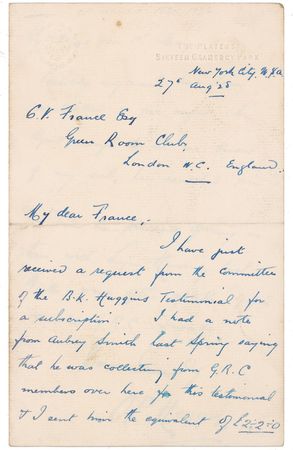 THE PLAYERS
SIXTEEN GRAMERCY PARK
New York City. U.S.A
27th Aug '28
C.V. France Esq
Green Room Club,
London W.C. England.
My dear France,
I have just
received a request from the Committee
of the B.K. Huggins Testimonial for
a subscription. I had a note
from Aubrey Smith last Spring saying
that he was collecting from G.R.C
members over here for this testimonial
& I sent him the equivalent of £2-2-0